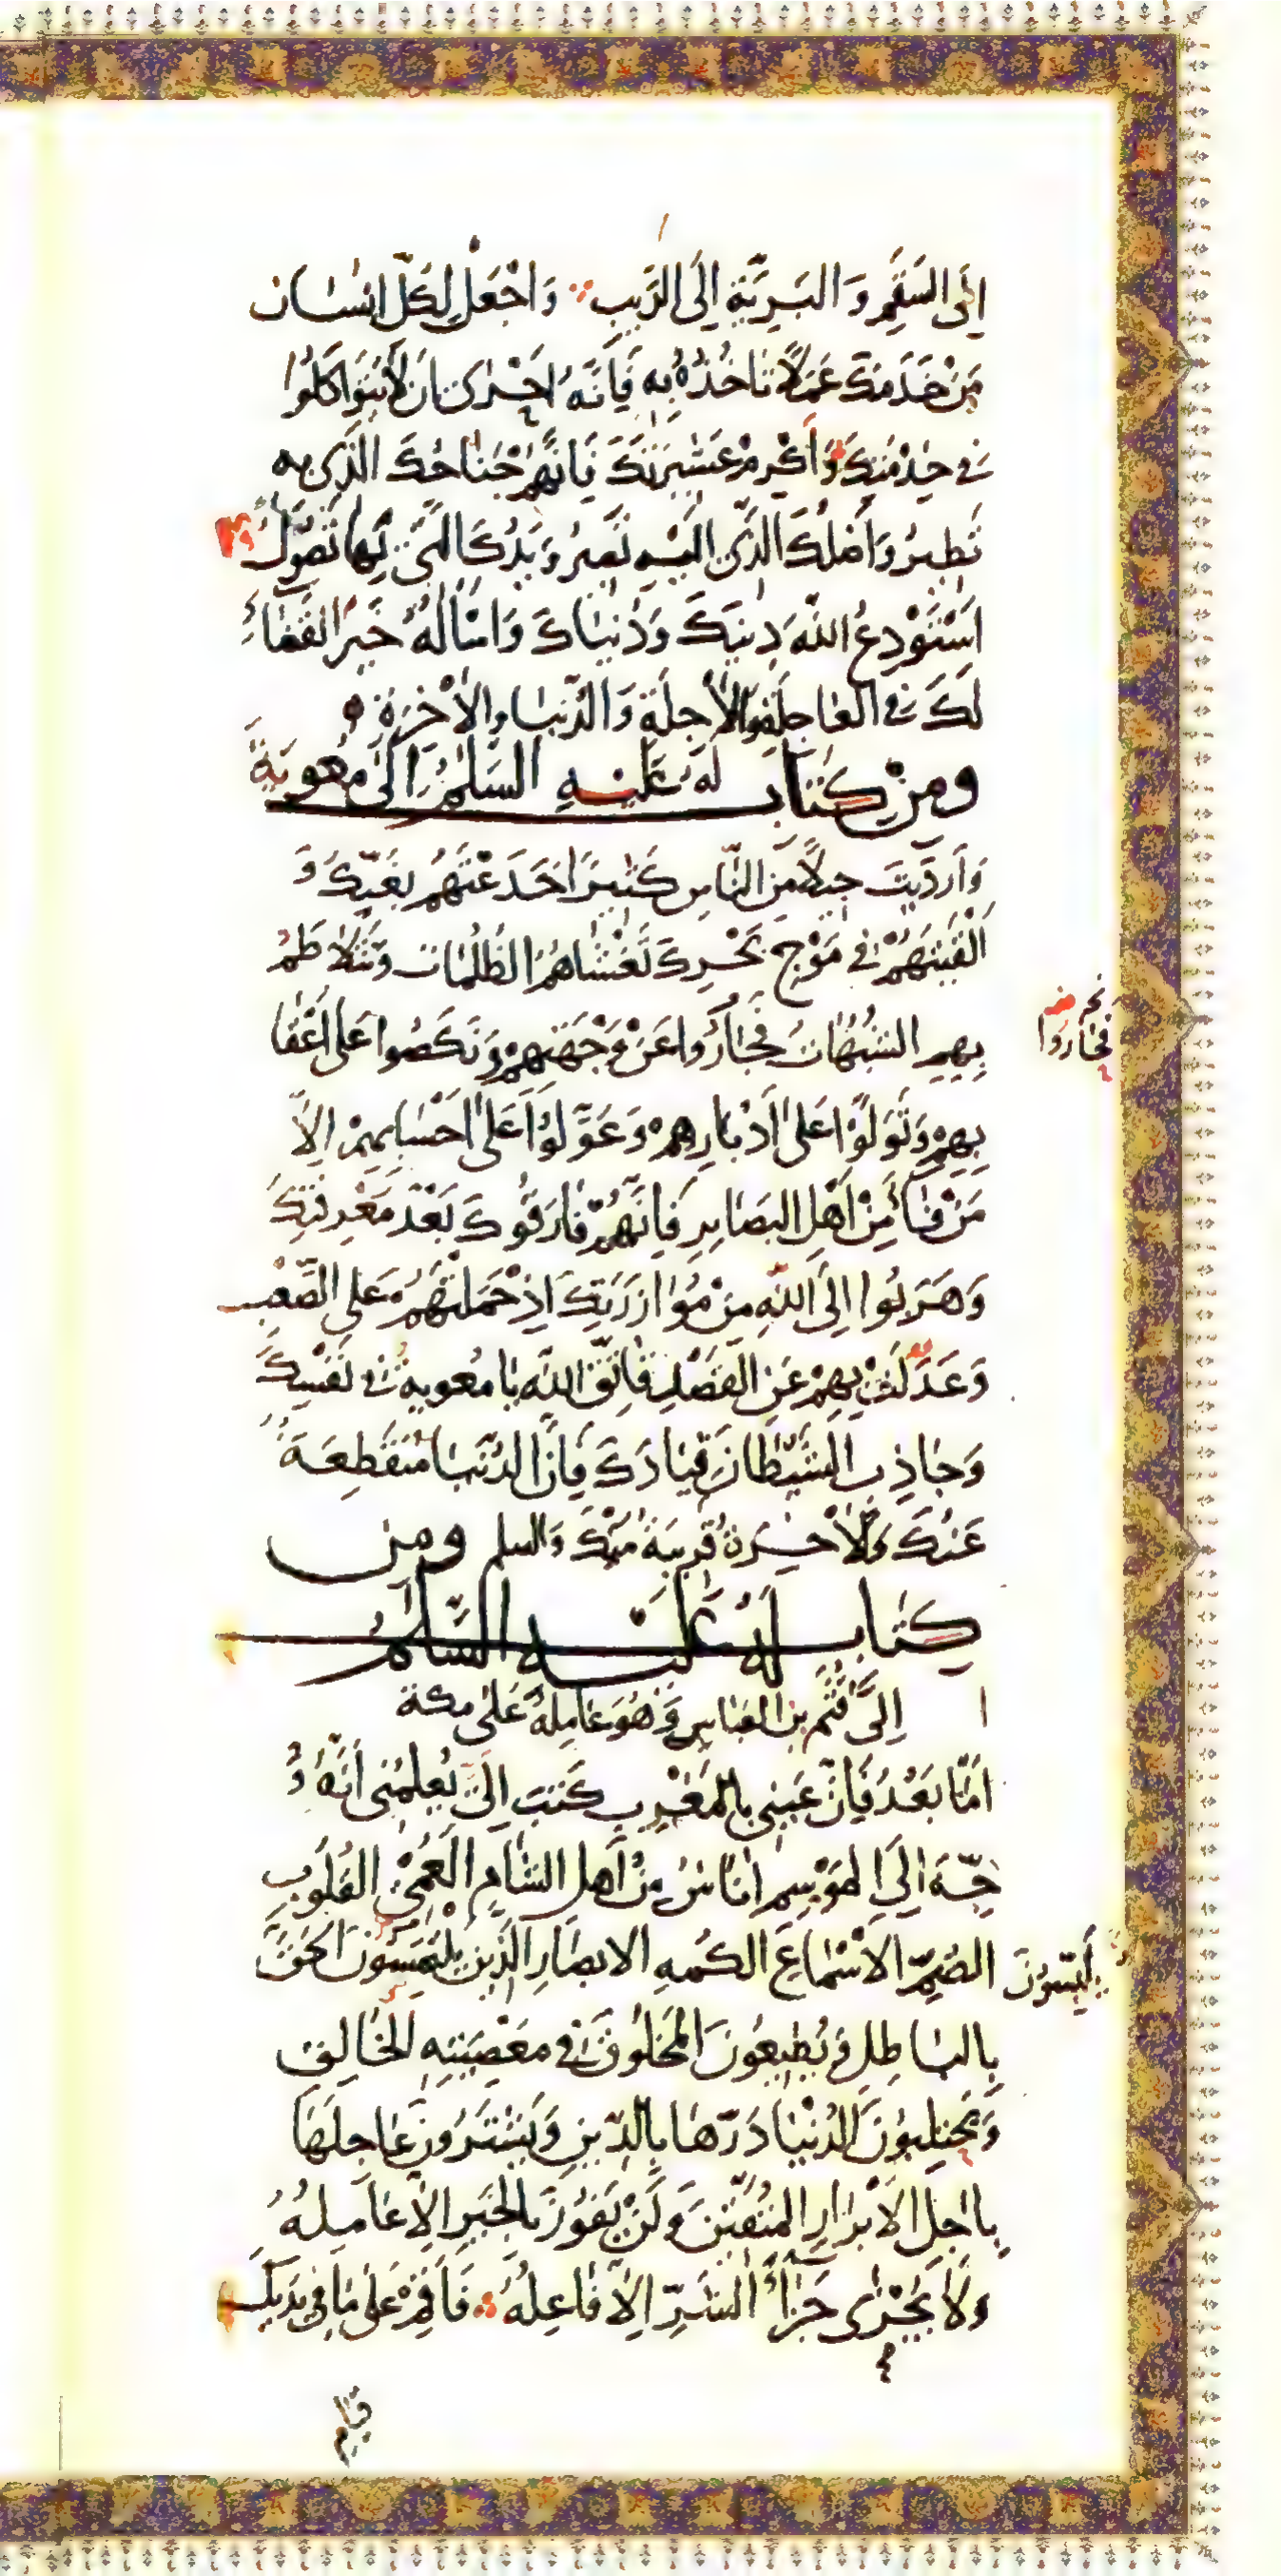 اِلَى السَّقَمِ وَ الْبَرِيَّةِ اِلَى الرَّيبِ وَاجْعَلْ لِكُلِّ اِنْسَان
مِنْ خَدَمِكَ عَمَلاً تَاخُذُهُ بِهِ فَاِنَّهُ اَحْرٰى اَن لاَ يَتَوَاكَلُوا
فى خِدْمَتِكَ وَ أَكْرِمْ عَشِيرَتَكَ فَاِنَّهُمْ جَنَاحُكَ الَّذِى بِهِ
تَطِيرُ وَاَصْلُكَ الَّذِى اِلَيْهِ تَصِيرُ وَ يَدُكَ الَّتى بِهَا تَصُولُ
اَسْتَوْدِعُ اللّهَ دِينَكَ وَ دُنْيَاكَ وَ اَسْأَلُهُ خَيرَ القَضَاءِ
لَكَ فِى العَاجِلَةِ وَالْاٰجِلَةِ وَ الدُّنْيَا وَالْاٰخِرَةِ
وَمِنْ كِتَابٍ لَهُ عَلَيْهِ السَّلٰمُ اِلٰى مُعٰوِيَةَ
وَ اَردَيْتَ جِيلاً مِنَ النَّاسِ كَثِيراً خَدَعْتَهُم بِغَيِّكَ وَ
اَلْقَيْتَهُمْ فِى مَوْجِ بَحْرِكَ تَغْشَاهُمُ الظُّلُمَات وَ تَتَلاَطَمُ
بِهِمِ الشُّبُهَاتُ فَجَارُوا عَنْ وَجْهَتِهِمْ وَ نَكَصُوا عَلى اَعْقَا
بِهِمْ وَ تَوَلَّوْا عَلىٰ اَدْبَارِهِمْ وَ عَوَّلُوا عَلىٰ اَحْسَابِهِمْ اِلاَّ
مَنْ فَاءَ مِنْ اَهْلِ البَصَايِرِ فَاِنَّهُمْ فَارَقُوكَ بَعْدَ مَعْرِفَتِكَ
وَهَرَبُوا اِلَى اللّهِ مِنْ مُوٰازَرَتِكَ اِذْ حَمَلْتَهُمْ عَلى الصَّعْبِ
وَعَدَلْتَ بِهِمْ عَنِ القَصْدِ فَاتَّقِ اللّهَ يَا مُعٰوِيةُ فِى نَفْسِكَ
وَجَاذِبِ الشَّيْطَانَ قِيَادَكَ فَاِنَّ الدُّنْيَا مُنْقَطِعَةٌ
عَنْكَ وَالْاٰخِرَةُ قَرِيبَةٌ مِنْكَ وَالسلم وَمِن
كِتَابٍ لَهُ عَلَيْهِ السَّلاَمُ
اِلىٰ قُثَمِ بنِ العَبَاسِ وَ هُوَ عَامِلُهُ عَلى مكة
اَمَّا بَعْدُ فَاِنَّ عَيْنِى بِالْمَغْرِبِ كَتَبَ اِلَىَّ يُعْلِمُنِى اَنَّهُ وُ
جِّهَ اِلَى المَوْسِمِ اُنَاسٌ مِنْ اَهلِ الشَّامِ الْعُمْىِ القُلُوبِ
الصُّمِّ الاَسْمَاعِ الكُمهِ الابصَارِ الَّذِينَ يَلْتَمِسُونَ الحَقَّ
بِالبَاطِلِ وَ يُطِيعُونَ المَخْلُوقَ فى مَعْصِيَتِهِ الْخَالِقِ
وَ يَحْتَلِبُونَ الدُّنْيَا دَرَّهَا بِالدِّينِ وَ يَشْتَرُونَ عَاجِلَهَا
بِاٰجِلِ الاَبْرَارِ المُتَّقِينَ وَ لَنْ يَفُوزَ بِالْخَيرِ اِلاَّ عَامِلُهُ
وَلاَ يُجْزٰى جَزَاءَ الشَّرِّ اِلاَّ فَاعِلُهُ فَاَقِمْ عَلىٰ مَا فى يَدَيْكَ
قِيَام
فَجَازُوا
يَلْبِسُونَ